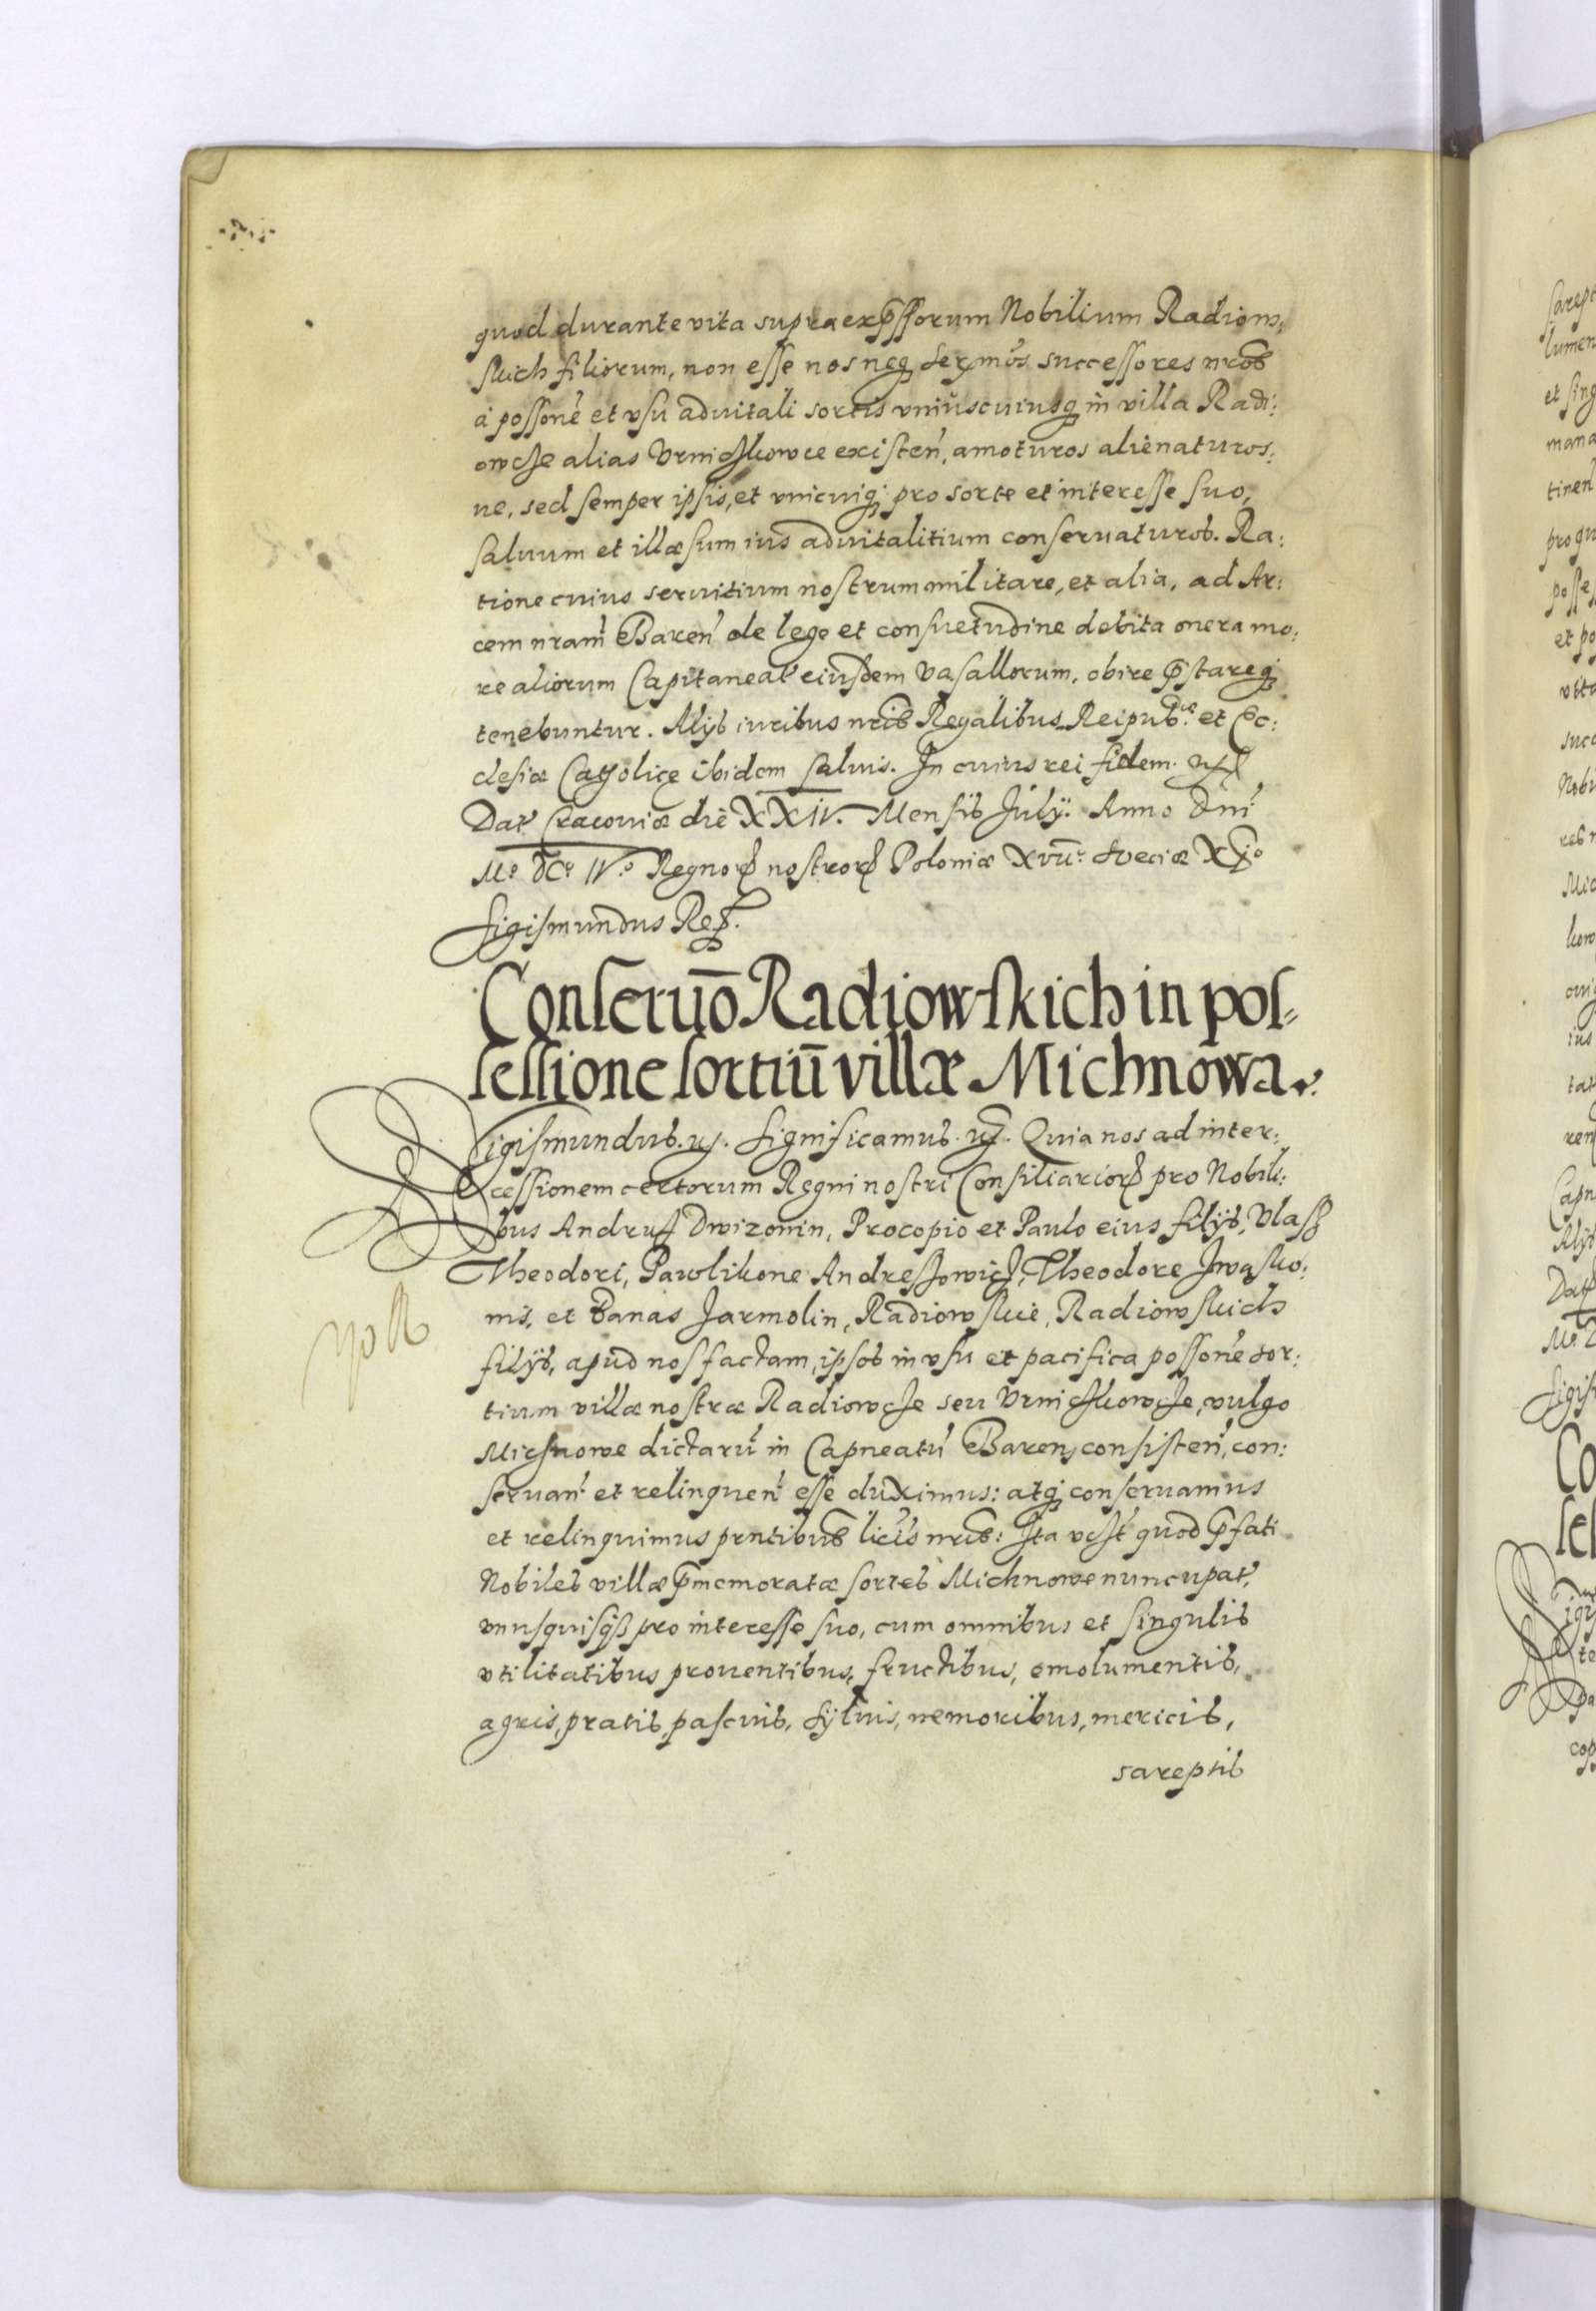 quod durante vita supraexp̃ssorum Nobilium Radiows,
skich filiorum, non esse nos neq Serẽmos successores nrõs
à possone et vsu aduitali sortis vniuscuiusq in villa Radi:
owcze alias Vrniczkowce existeñ, amoturos alienaturos:
ue, sed semper ipsis, et vnicuiq pro sorte et interesse suo,
saluum et illæsum ius aduitalitium conseruaturos. Ra:
tione cuius seruitium nostrum militare, et alia, ad Ar:
cem nram̃ Bareñ de lege et consuetudine debita onera mo:
re aliorum Capitaneat eiusdem vasallorum, obire p̃stareq
tenebuntur. Alÿs iuribus nrĩs Regalibus Reipub.cæ et Ec:
clesiæ Catholicę ibidem saluis. In cuius rei fidem.
Dat Cracouiæ die XXIV. Mensis Julÿ. Anno Dni
Mo. DCo. IVo. Regnor nostror Poloniæ XVII. Sueciæ XIo
Sigismundus Rex.
Conseruõ Radiowskich in pos-
sessione sortiũ villæ Michnowa.
Sigismundus. Significamus. Quia nos ad inter:
cessionem certorum Regni nostri Consiliarior pro Nobili:
bus Andrusz Dwizonin, Procopio et Paulo eius filÿs, Vlasz
Theodori, Pawlikone Andreszowicz, Theodore Iwasko:
nis, et Panas Jarmolin, Radiowskie, Radiowskich
filÿs, apud nos factam, ipsos in vsu et pacifica possone sor:
tium villæ nostræ Radiowcze seu Vrniczkowcze, vulgo
Michnowe dictarũ in Capneatũ Bareñ consisteñ, con:
seruañ et relinqueñ esse duximus: atq conseruamus
et relinquimus pñtibus lrĩs nrĩs: Ita vczt quod p̃fati
Nobiles villæ p̃memoratæ sortes Michnowe nuncupat,
vnusquisq pro interesse suo, cum omnibus et singulis
vtilitatibus prouentibus, fructibus, emolumentis,
agris, pratis, pascuis, syluis, nemoribus, mericis,
sareptis